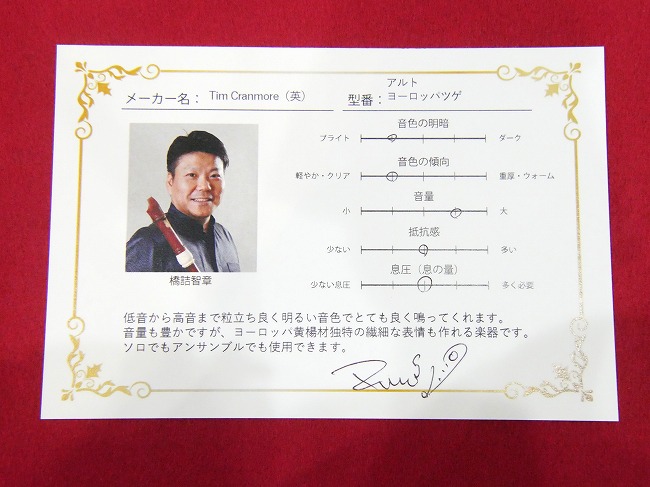 メーカー名： Tim Cranmore（英）
型番：
アルト
ヨーロッパツゲ
音色の明暗
ブライト ダーク
音色の傾向
軽やか・クリア 重厚・ウォーム
音量
小 大
抵抗感
少ない 多い
息圧（息の量）
少ない息圧 多く必要
橋詰智章
低音から高音まで粒立ち良く明るい音色でとても良く鳴ってくれます。
音量も豊かですが、ヨーロッパ黄楊材独特の繊細な表情も作れる楽器です。
ソロでもアンサンブルでも使用できます。